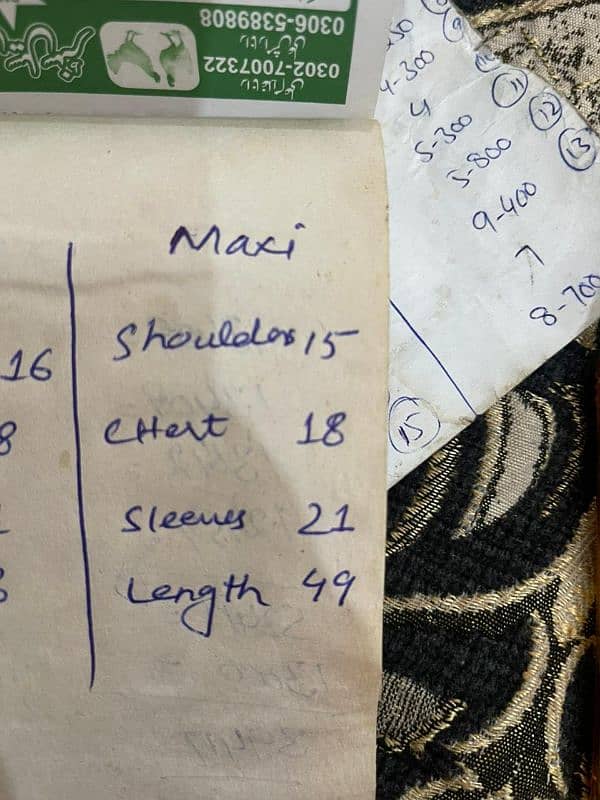 0306-5389808
0302-7007322
4-300
4
5-300
5-800
9-400
7
8-700
11
12
13
15
Maxi
16
Shoulder 15
8
CHest 18
Sleeves 21
Length 49